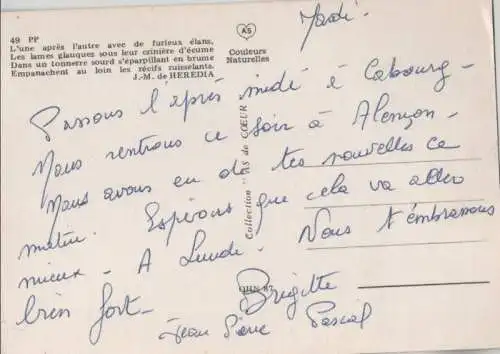 49 PP
L'une après l'autre avec de furieux élans,
Les lames glauques sous leur crinière d'écume
Dans un tonnerre sourd s'éparpillant en brume
Empanachent au loin les récifs ruisselants.
J.-M. de HEREDIA
AS
Couleurs
Naturelles
Collection "AS de CŒUR"
Mardi.
Passons l'après midi à Cabourg -
Nous rentrons ce soir à Alençon -
Nous avons eu de tes nouvelles ce
matin. Espérons que cela va aller
mieux - A Lundi. Nous t'embrassons
bien fort -
Brigitte
Jean Pierre Pascal